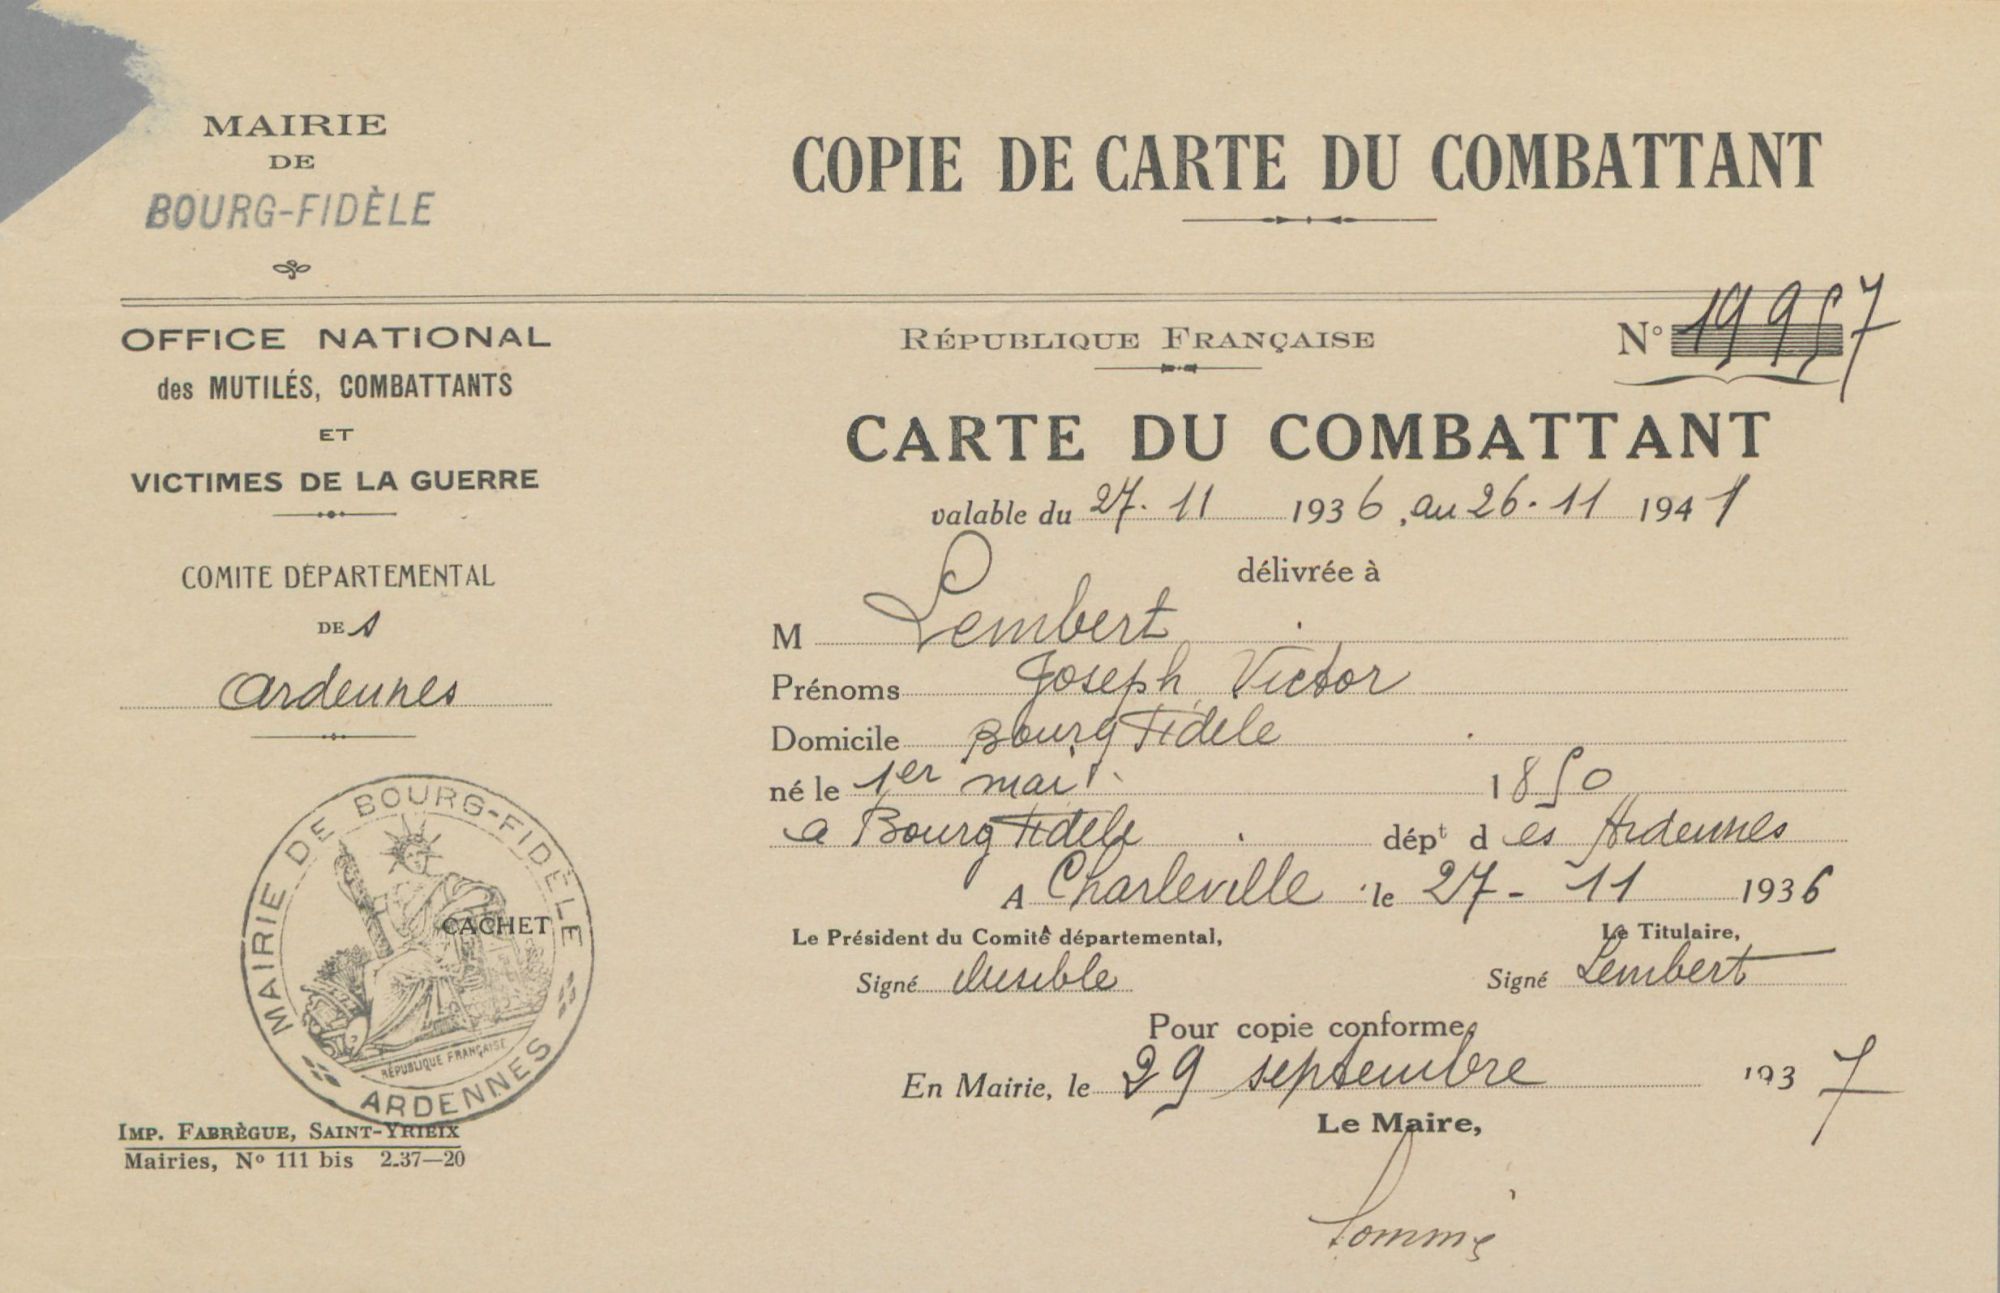 MAIRIE
DE
BOURG-FIDÈLE
COPIE DE CARTE DU COMBATTANT
OFFICE NATIONAL
des MUTILÉS, COMBATTANTS
ET
VICTIMES DE LA GUERRE
COMITE DEPARTEMENTAL
DES
Ardennes
MAIRIE DE BOURG-FIDÈLE
RÉPUBLIQUE FRANÇAISE
ARDENNES
CACHET
IMP. FABRÈGUE, SAINT-YRIEIX
Mairies, No 111 bis 2.37—20
RÉPUBLIQUE FRANÇAISE
N° 19957
CARTE DU COMBATTANT
valable du 27.11 1936, au 26.11 1941
délivrée à
M Lembert
Prénoms Joseph Victor
Domicile Bourg Fidele
né le 1er mai 1850
a Bourg Fidele dépt des Ardennes
A Charleville le 27-11 1936
Le Président du Comité départemental,
Signé illisible
Le Titulaire,
Signé Lembert
Pour copie conforme,
En Mairie, le 29 septembre 1937
Le Maire,